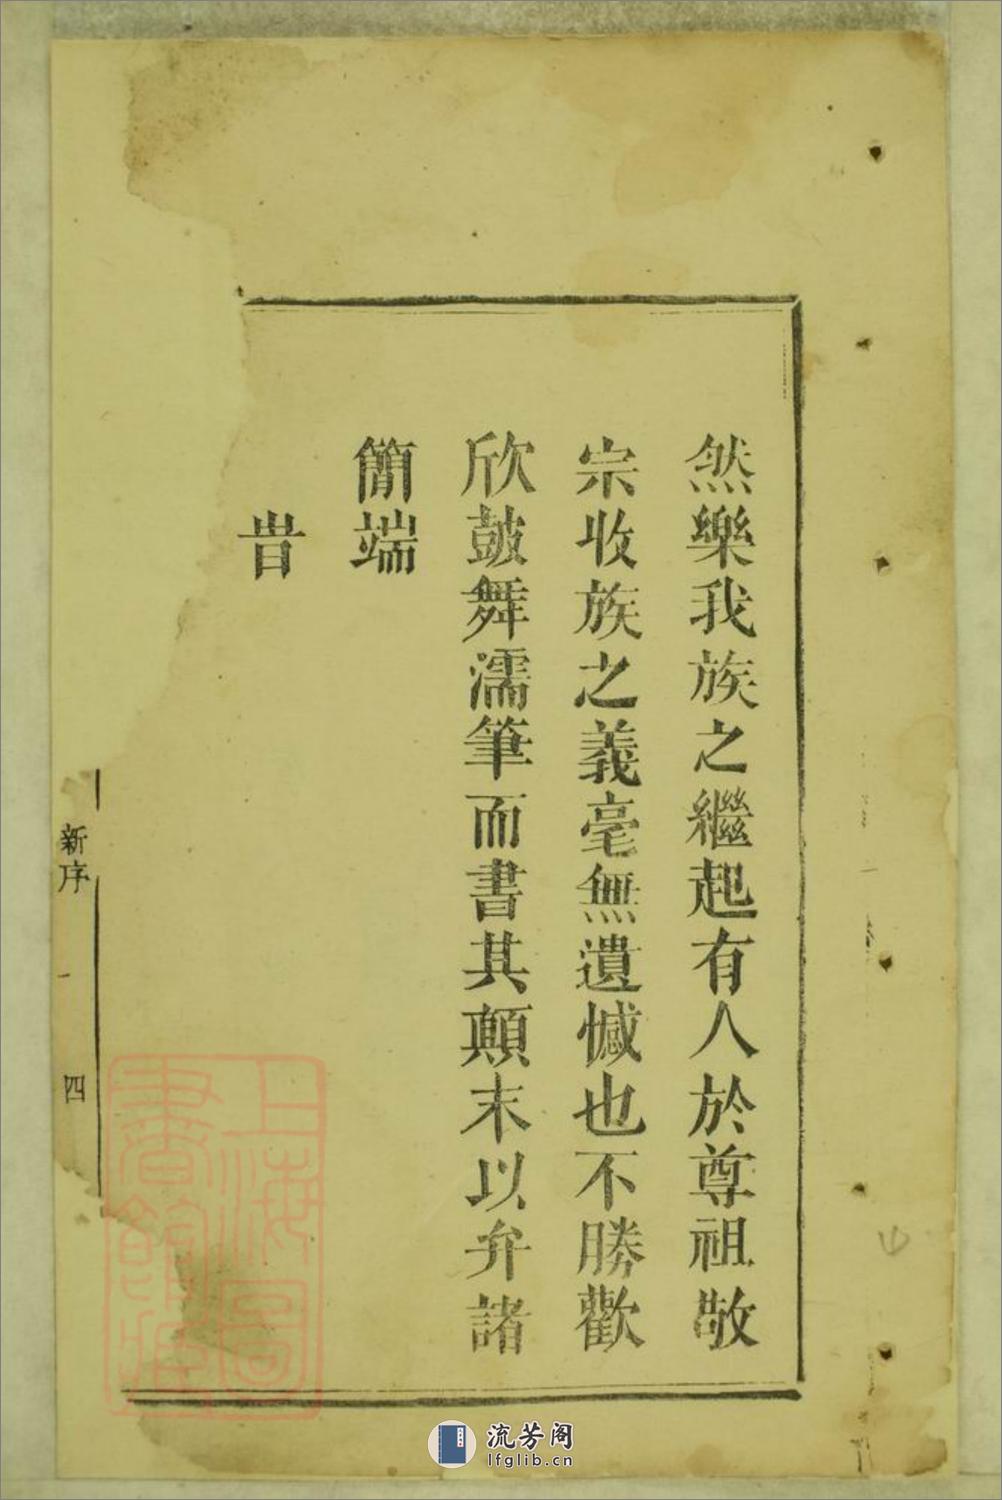 然樂我族之繼起有人於尊祖敬
宗收族之義毫無遺憾也不勝歡
欣鼓舞濡筆而書其顛末以弁諸
簡端
旹
新序
一
四
上海圖
書館藏
流芳阁
lfglib.cn